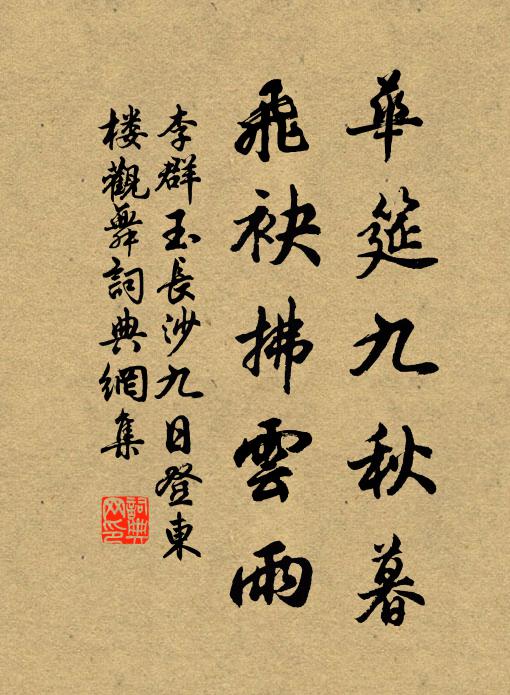 華筵九秋暮
飛袂拂雲雨
李群玉長沙九日登東
楼觀舞詞典網集
詞典
网印